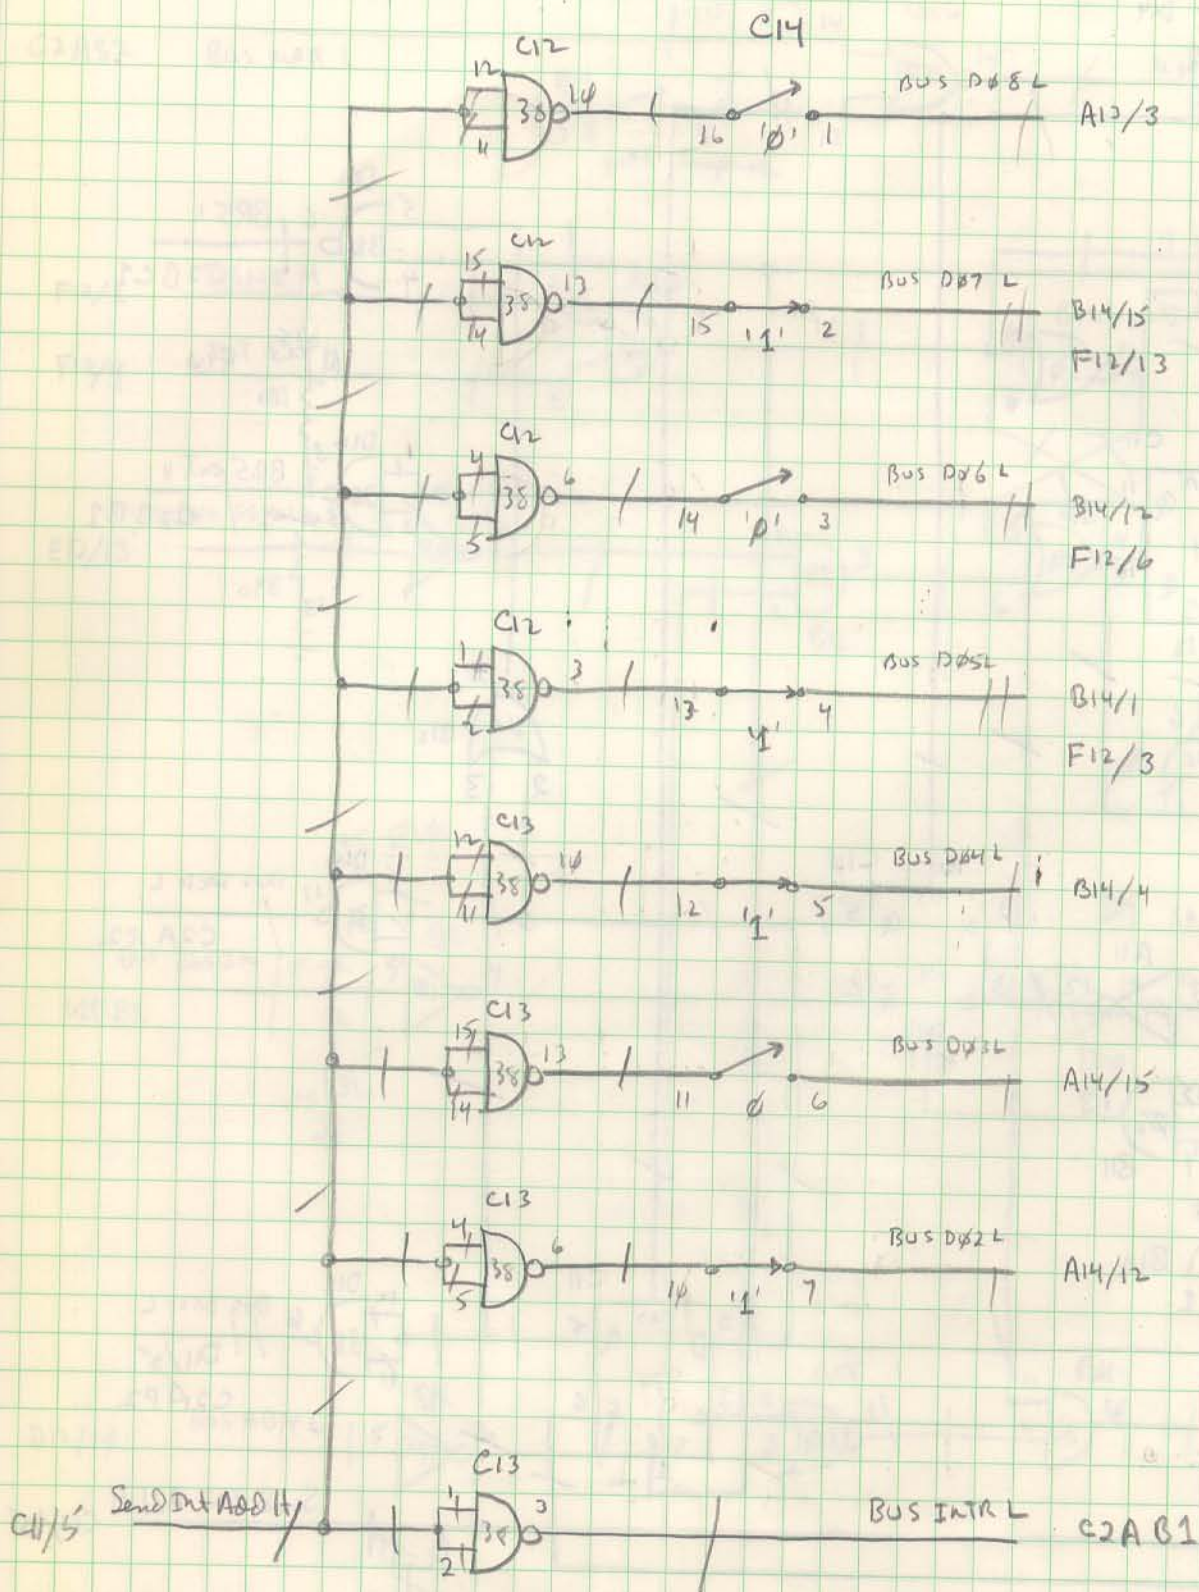 C14
C12
12
11
38
10
16
'Ø'
1
BUS DØ8 L
A13/3
C12
15
14
38
13
15
'1'
2
BUS DØ7 L
B14/15
F12/13
C12
4
5
38
6
14
'Ø'
3
BUS DØ6 L
B14/12
F12/6
C12
1
2
38
3
13
'1'
4
BUS DØ5L
B14/1
F12/3
C13
12
11
38
10
12
'1'
5
BUS DØ4 L
B14/4
C13
15
14
38
13
11
Ø
6
BUS DØ3L
A14/15
C13
4
5
38
6
10
'1'
7
BUS DØ2 L
A14/12
C13
C11/5
Send Int Add H
1
2
38
3
BUS INTR L
C2A B1